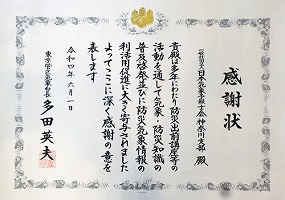 感謝状
一般社団法人日本気象予報士会神奈川支部 殿
貴殿は多年にわたり防災出前講座等の
活動を通して気象・防災知識の
普及啓発並びに防災気象情報の
利活用促進に大きく寄与されました
よってここに深く感謝の意を
表します
令和四年六月一日
東京管区気象台長
多田英夫